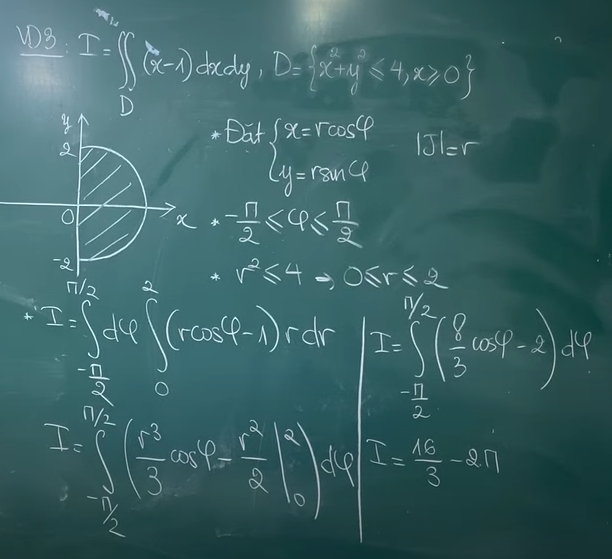 VD3: I = ∬_D (x-1)dxdy, D = {x²+y² ≤ 4, x ≥ 0}
* Đặt { x = rcosφ
y = rsinφ
|J| = r
y
2
0
x
-2
* -π/2 ≤ φ ≤ π/2
* r² ≤ 4 → 0 ≤ r ≤ 2
* I = ∫_{-π/2}^{π/2} dφ ∫_0^2 (rcosφ - 1) r dr
I = ∫_{-π/2}^{π/2} (r³/3 cosφ - r²/2 |_0^2) dφ
I = ∫_{-π/2}^{π/2} (8/3 cosφ - 2) dφ
I = 16/3 - 2π